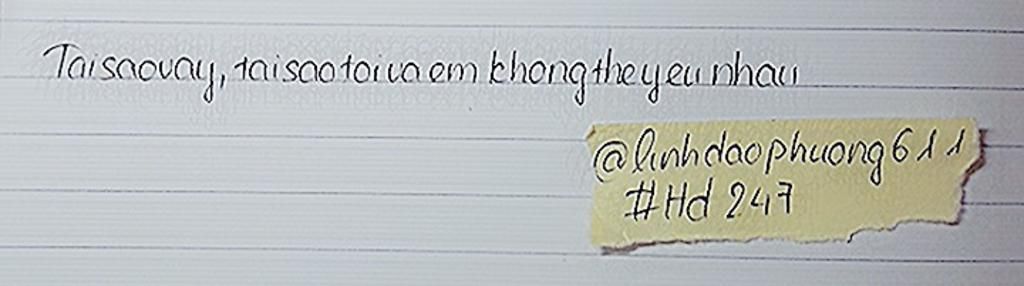 Taisaovay, taisaotoivaem khongtheyeunhau
@linhdaophuong611
#Hd 247